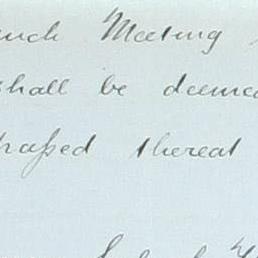 such Meeting
shall be deemed
passed thereat